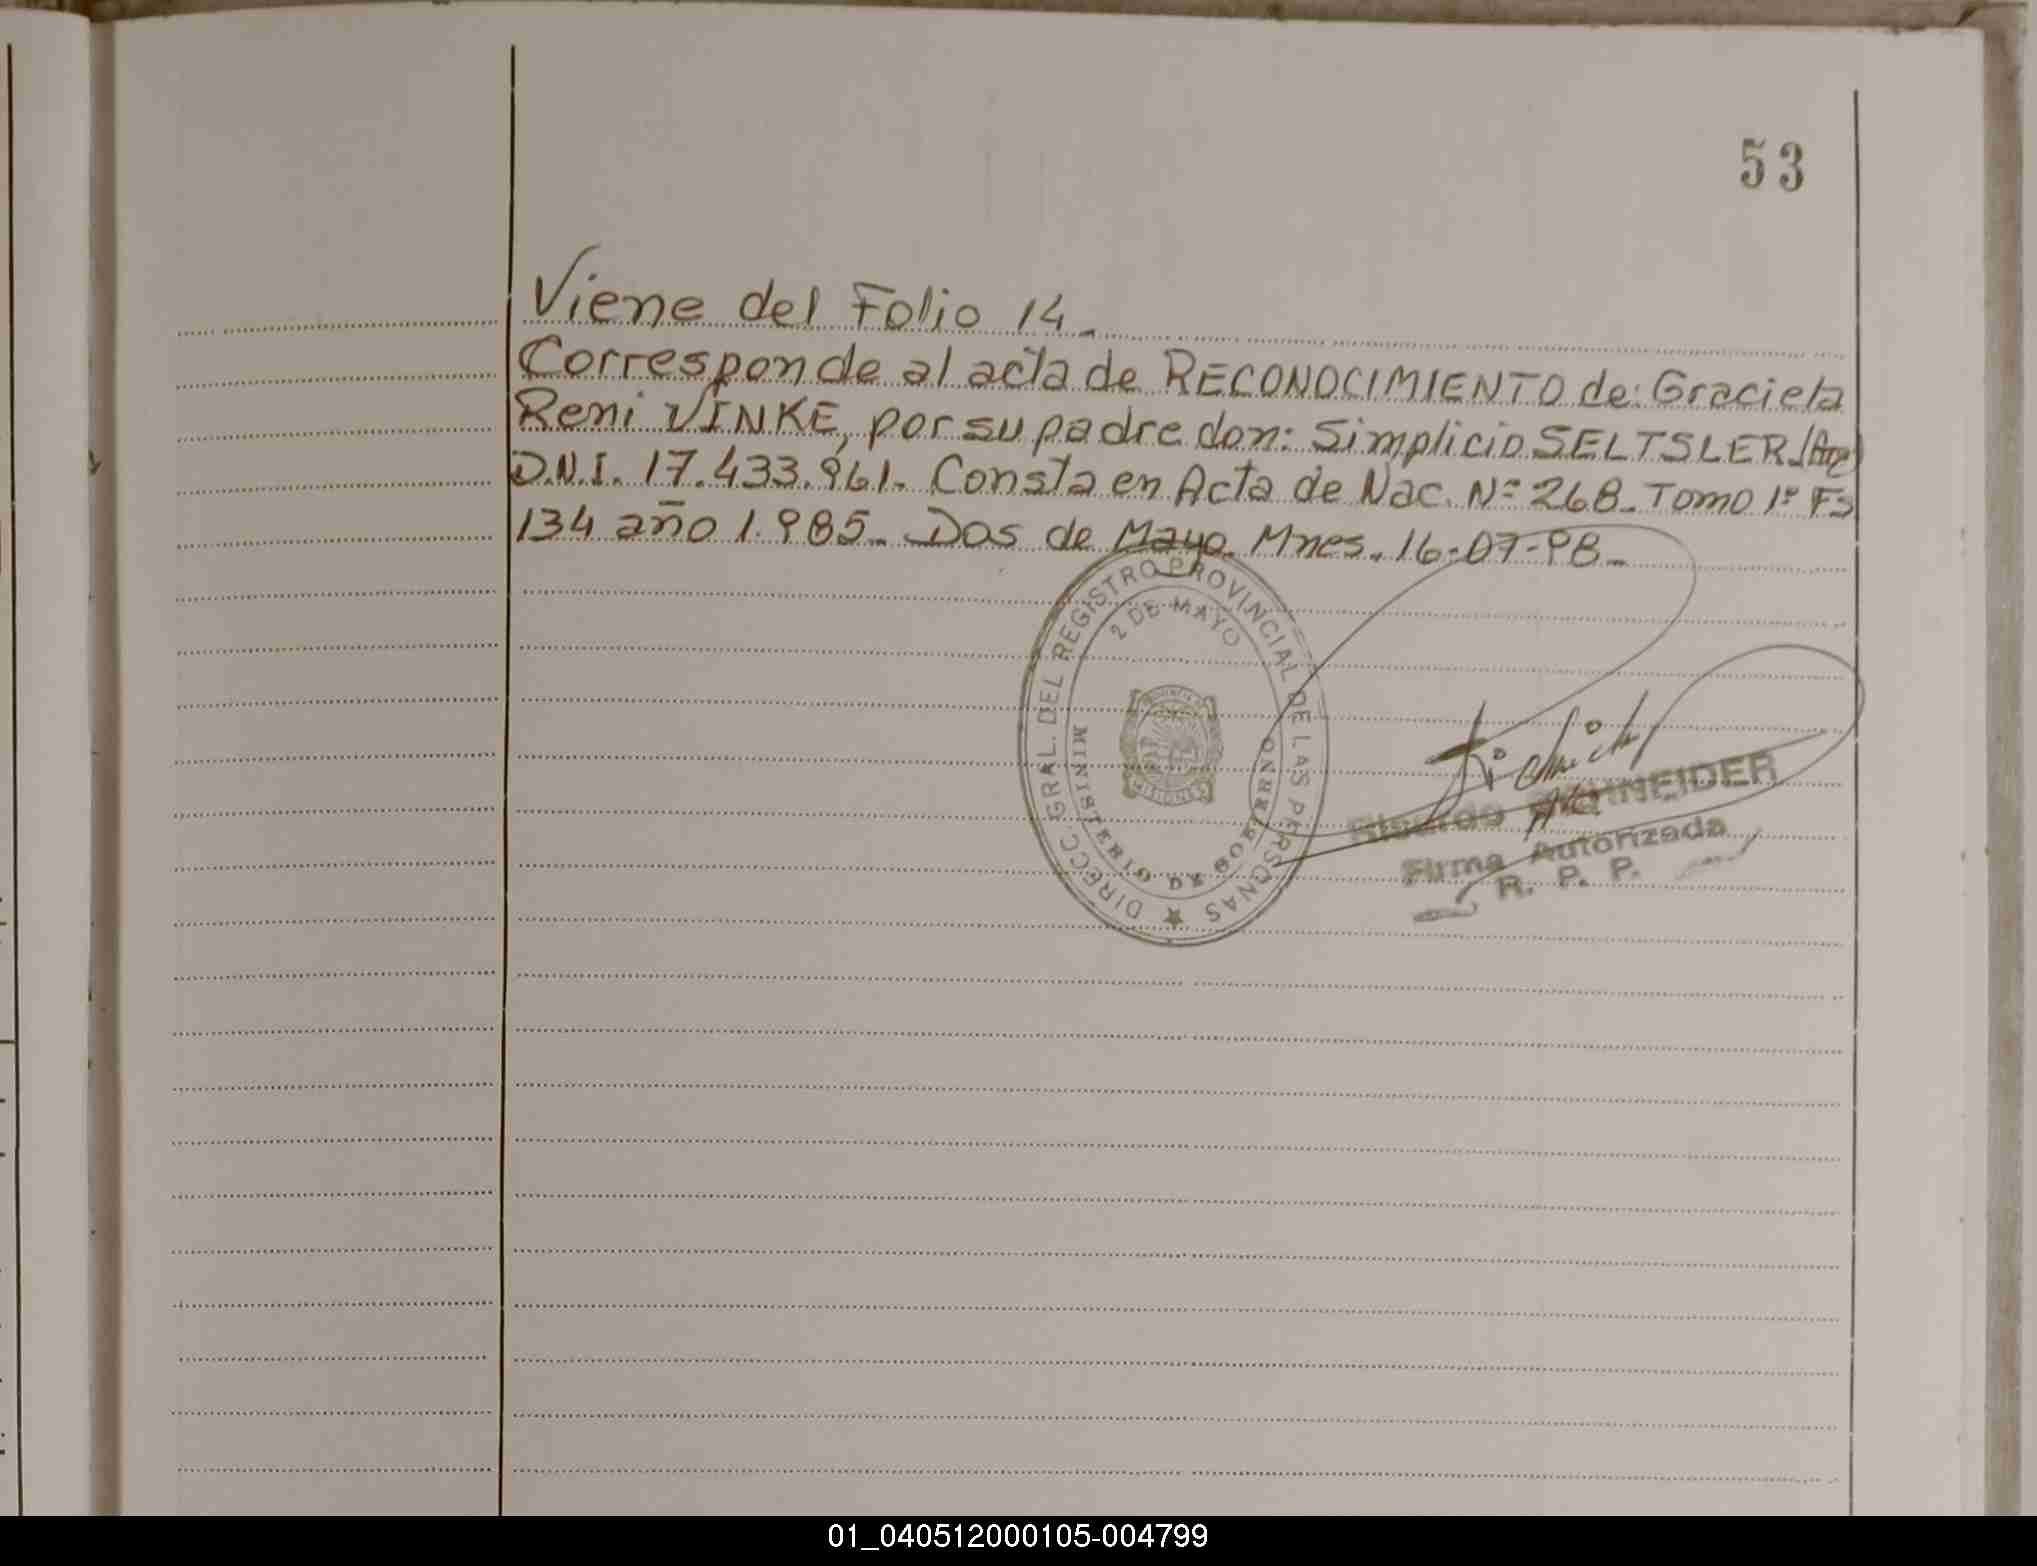 53
Viene del Folio 14.
Corresponde al acta de RECONOCIMIENTO de: Graciela
Reni VINKE, por su padre don: Simplicio SELTSLER (Arg)
D.N.I. 17.433.961. Consta en Acta de Nac. Nº 268. Tomo 1º Fs
134 año 1.985. Dos de Mayo. Mnes. 16-07-98.
DIRECC. GRAL. DEL REGISTRO PROVINCIAL DE LAS PERSONAS
2 DE MAYO
MINISTERIO DE GOBIERNO
PROVINCIA
MISIONES
Ricardo SCHNEIDER
Firma Autorizada
R. P. P.
01_040512000105-004799